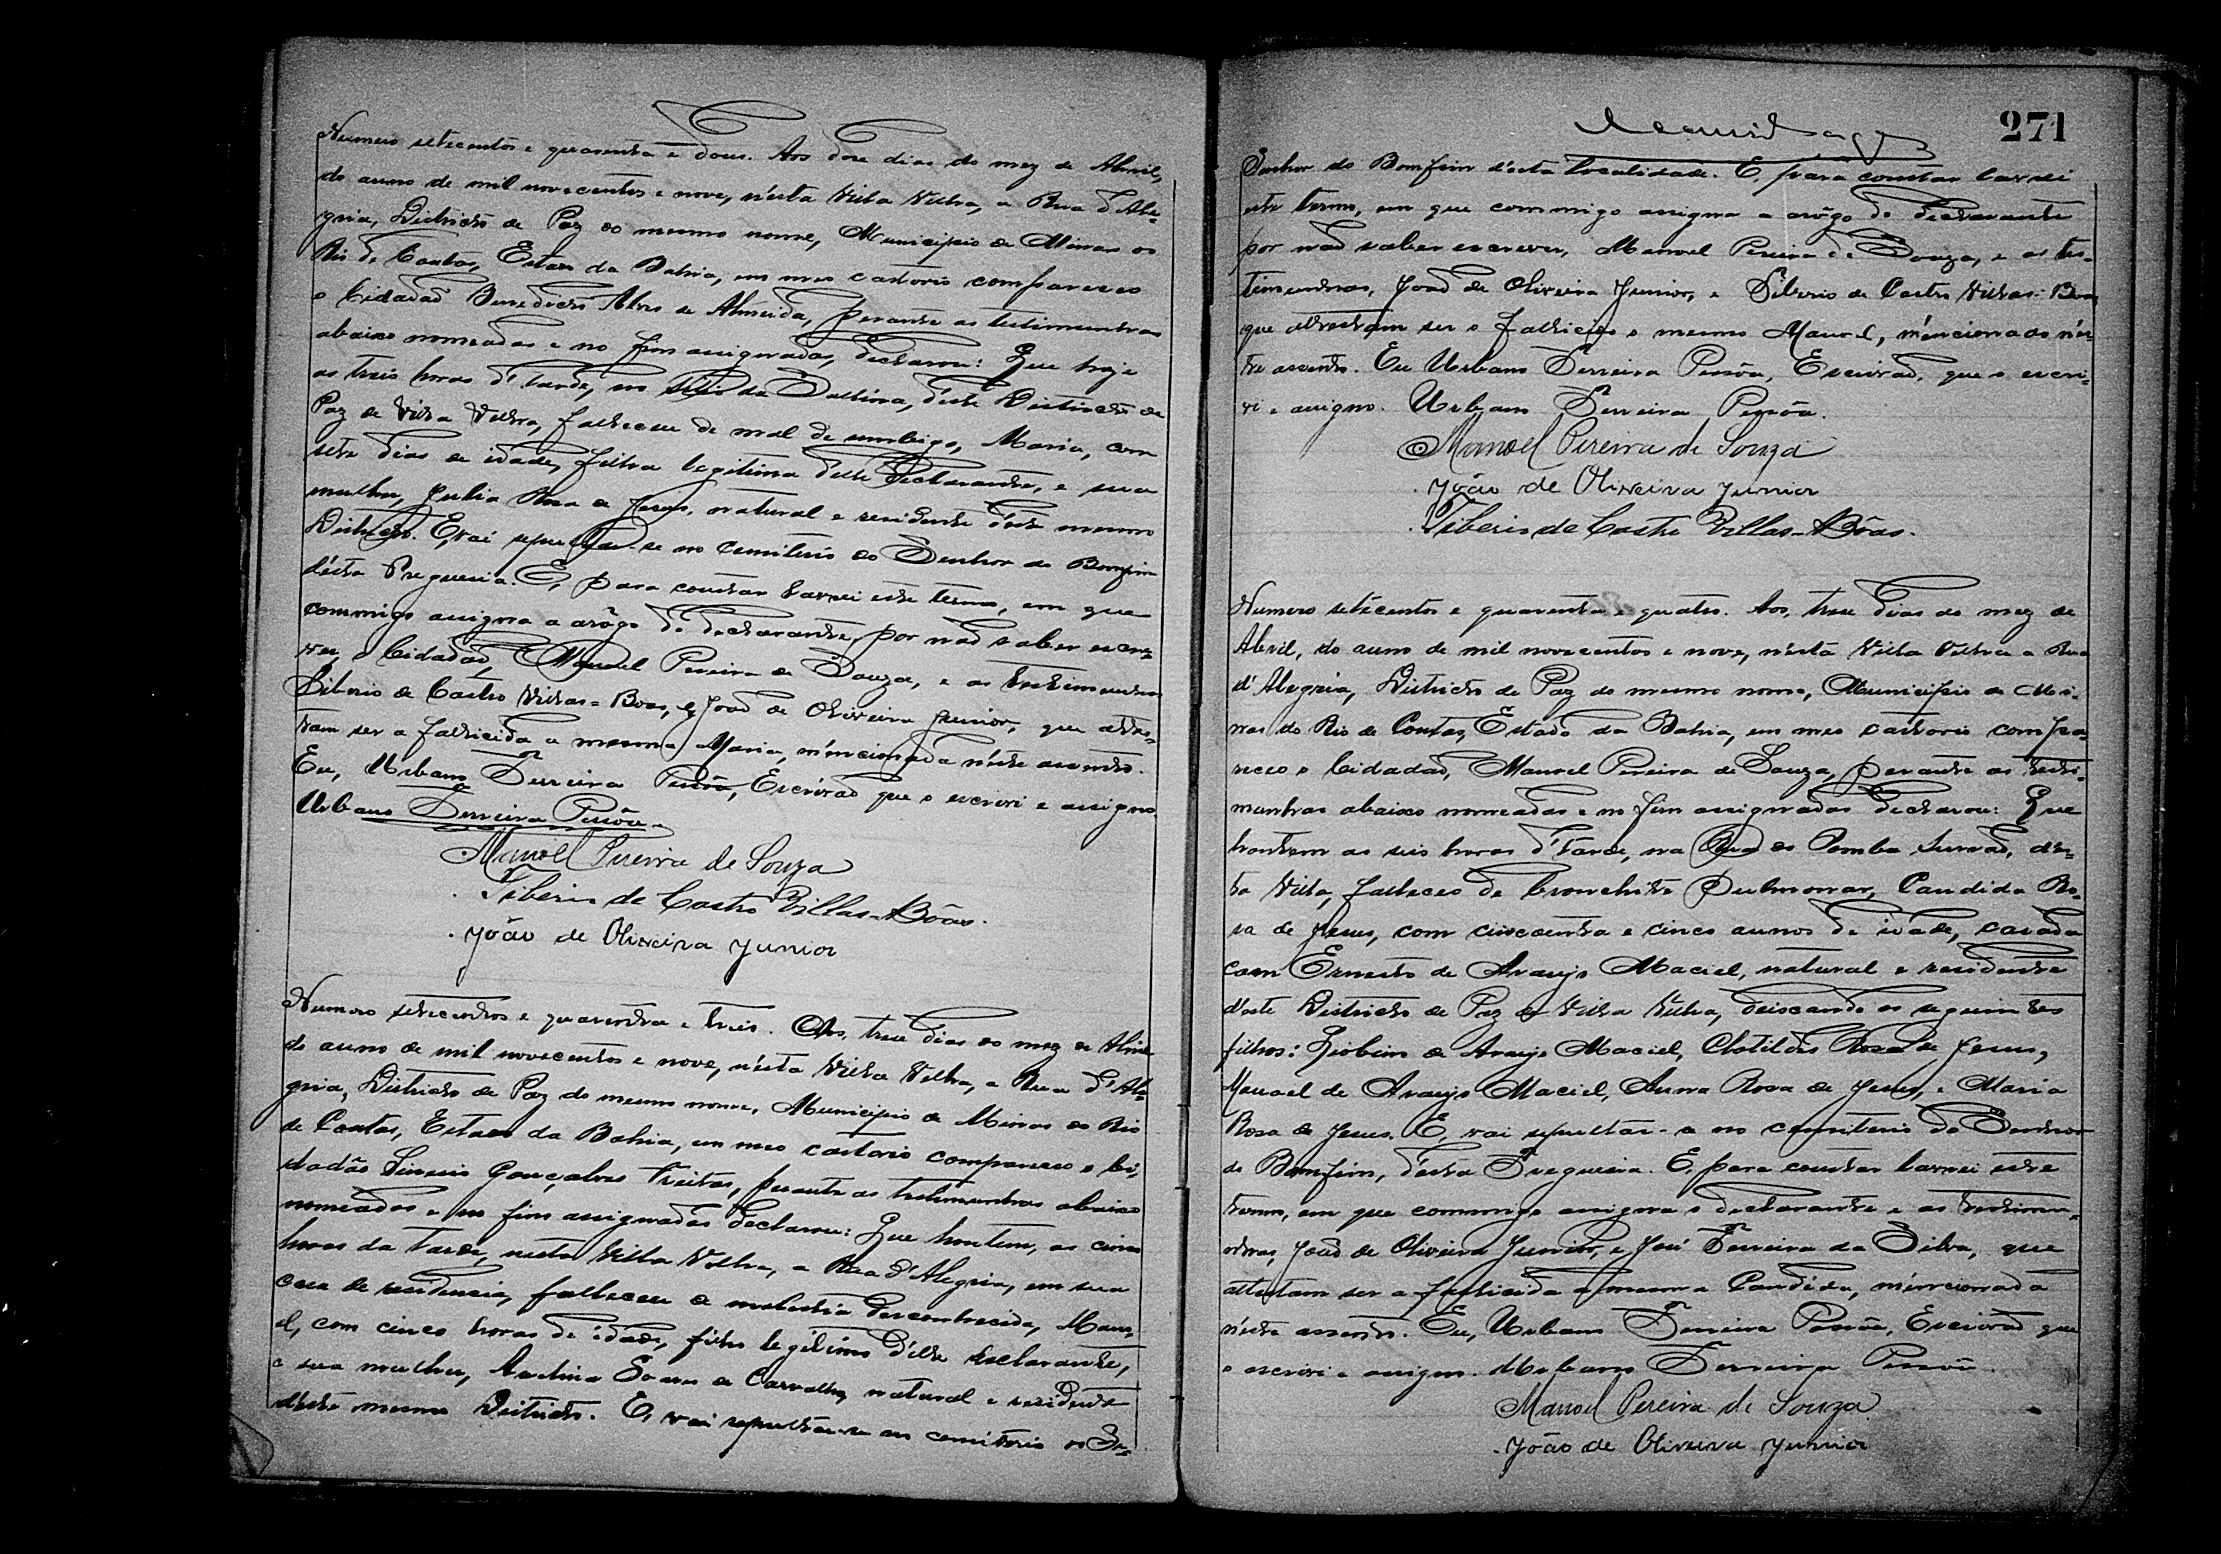 Numero setecentos e quarenta e dous. Aos doze dias do mez de Abril,
do anno de mil novecentos e nove, n'esta Villa Velha, a Rua d'Ale-
gria, Districto de Paz do mesmo nome, Municipio de Minas do
Rio de Contas, Estado da Bahia, em meo cartorio compareceo
o Cidadaõ Benedicto Alves de Almeida, perante as testimunhas
abaixo nomeadas e no fim assignadas, declarou: Que hoje
as treis horas d'tarde, no Sitio da, d'este Districto de
Paz de Villa Velha, falleceu de mal de umbigo, Maria, com
sete dias de idade, filha legitima d'elle declarante, e sua
mulher, Julia Rosa de Jesus, natural e residente d'este mesmo
Districto. E, vai sepultar-se no Cemiterio do Senhor do Bomfim
d'ésta Freguesia. E, para constar lavrei este termo, em que
commigo assigna a arôgo do declarante, por naõ saber escre-
ver, o Cidadaõ, Manoel Pereira de Souza, e as testimunhas
Tiberio de Castro Villas=Boas, e Joaõ de Oliveira Junior, que attes-
tam ser a fallecida a mesma Maria, méncionada n'éste assento.
Eu, Urbano Ferreira Pessôa, Escrivaõ que o escrivi e assigno
Urbano Ferreira Pessôa.
Manoel Pereira de Souza
Tiberio de Castro Villas-Bôas.
João de Oliveira Junior
Numero setecentos e quarenta e treis. Aos, treze dias do mez de Abril
do anno de mil novecentos e nove, n'ésta Villa Velha, a Rua d'Ale-
gria, Districto de Paz do mesmo nome, Municipio de Minas do Rio
de Contas, Estado da Bahia, em meo cartorio compareceo o Ci-
dadão Gonçalves Freitas, perante as testimunhas abaixo
nomeadas e no fim assignadas declarou: Que hontem, as cinco
horas da tarde, nesta Villa Velha, a Rua d'Alegria, em sua
casa de residencia, falleceu de molestia desconhecida, Mano-
el, com cinco horas de idade, filho legitimo d'elle declarante,
e sua mulher, Soares de Carvalho, natural e residente
d'éste mesmo Districto. E, vai sepultar-se no cemiterio do Se-
271
Senhor do Bomfim d'ésta localidade. E, para constar lavrei
este termo, em que commigo assigna a arôgo do declarante
por naõ saber escrever, Manoel Pereira de Souza, e as tes-
timunhas, Joaõ de Oliveira Junior, e Tiberio de Castro Villas-Boas
que attestam ser o fallecido o mesmo Manoel, méncionado n'es-
te assento. Eu Urbano Ferreira Pessôa, Escrivaõ, que o escri-
vi e assigno. Urbano Ferreira Pessôa.
Manoel Pereira de Souza
João de Oliveira Junior
Tiberio de Castro Villas-Bôas.
Numero setécentos e quarenta e quatro. Aos, treze dias do mez de
Abril, do anno de mil novecentos e nove, n'ésta Villa Velha a Rua
d'Alegria, Districto de Paz do mesmo nome, Municipio de Mi-
nas do Rio de Contas, Estado da Bahia, em meo cartorio compa-
receo o Cidadaõ, Manoel Pereira de Souza, perante as testi-
munhas abaixo nomeadas e no fim assignadas declarou: Que
hontem as seis horas d'tarde, na Rua do, d'és-
ta Villa, falleceo de bronchite pulmonar, Candida Ro-
sa de Jesus, com cincoenta e cinco annos de idade, casada
com Ernesto de Araujo Maciel, natural e residente
d'este Districto de Paz de Villa Velha, deixando os seguintes
filhos: de Araujo Maciel, Clotildes Rosa de Jesus,
Manoel de Araujo Maciel, Anna Rosa de Jesus, e Maria
Rosa de Jesus. E, vai sepultar-se no cemiterio do Senhor
do Bomfim, d'esta Freguesia. E, para constar lavrei este
termo, em que commigo assigna o declarante e as testimu-
nhas, João de Oliveira Junior, e José Ferreira da Silva, que
attestam ser a fallecida a mesma Candida, méncionada
n'éste assento. Eu, Urbano Ferreira Pessôa, Escrivaõ que
o escrivi e assigno. Urbano Ferreira Pessôa.
Manoel Pereira de Souza
João de Oliveira Junior